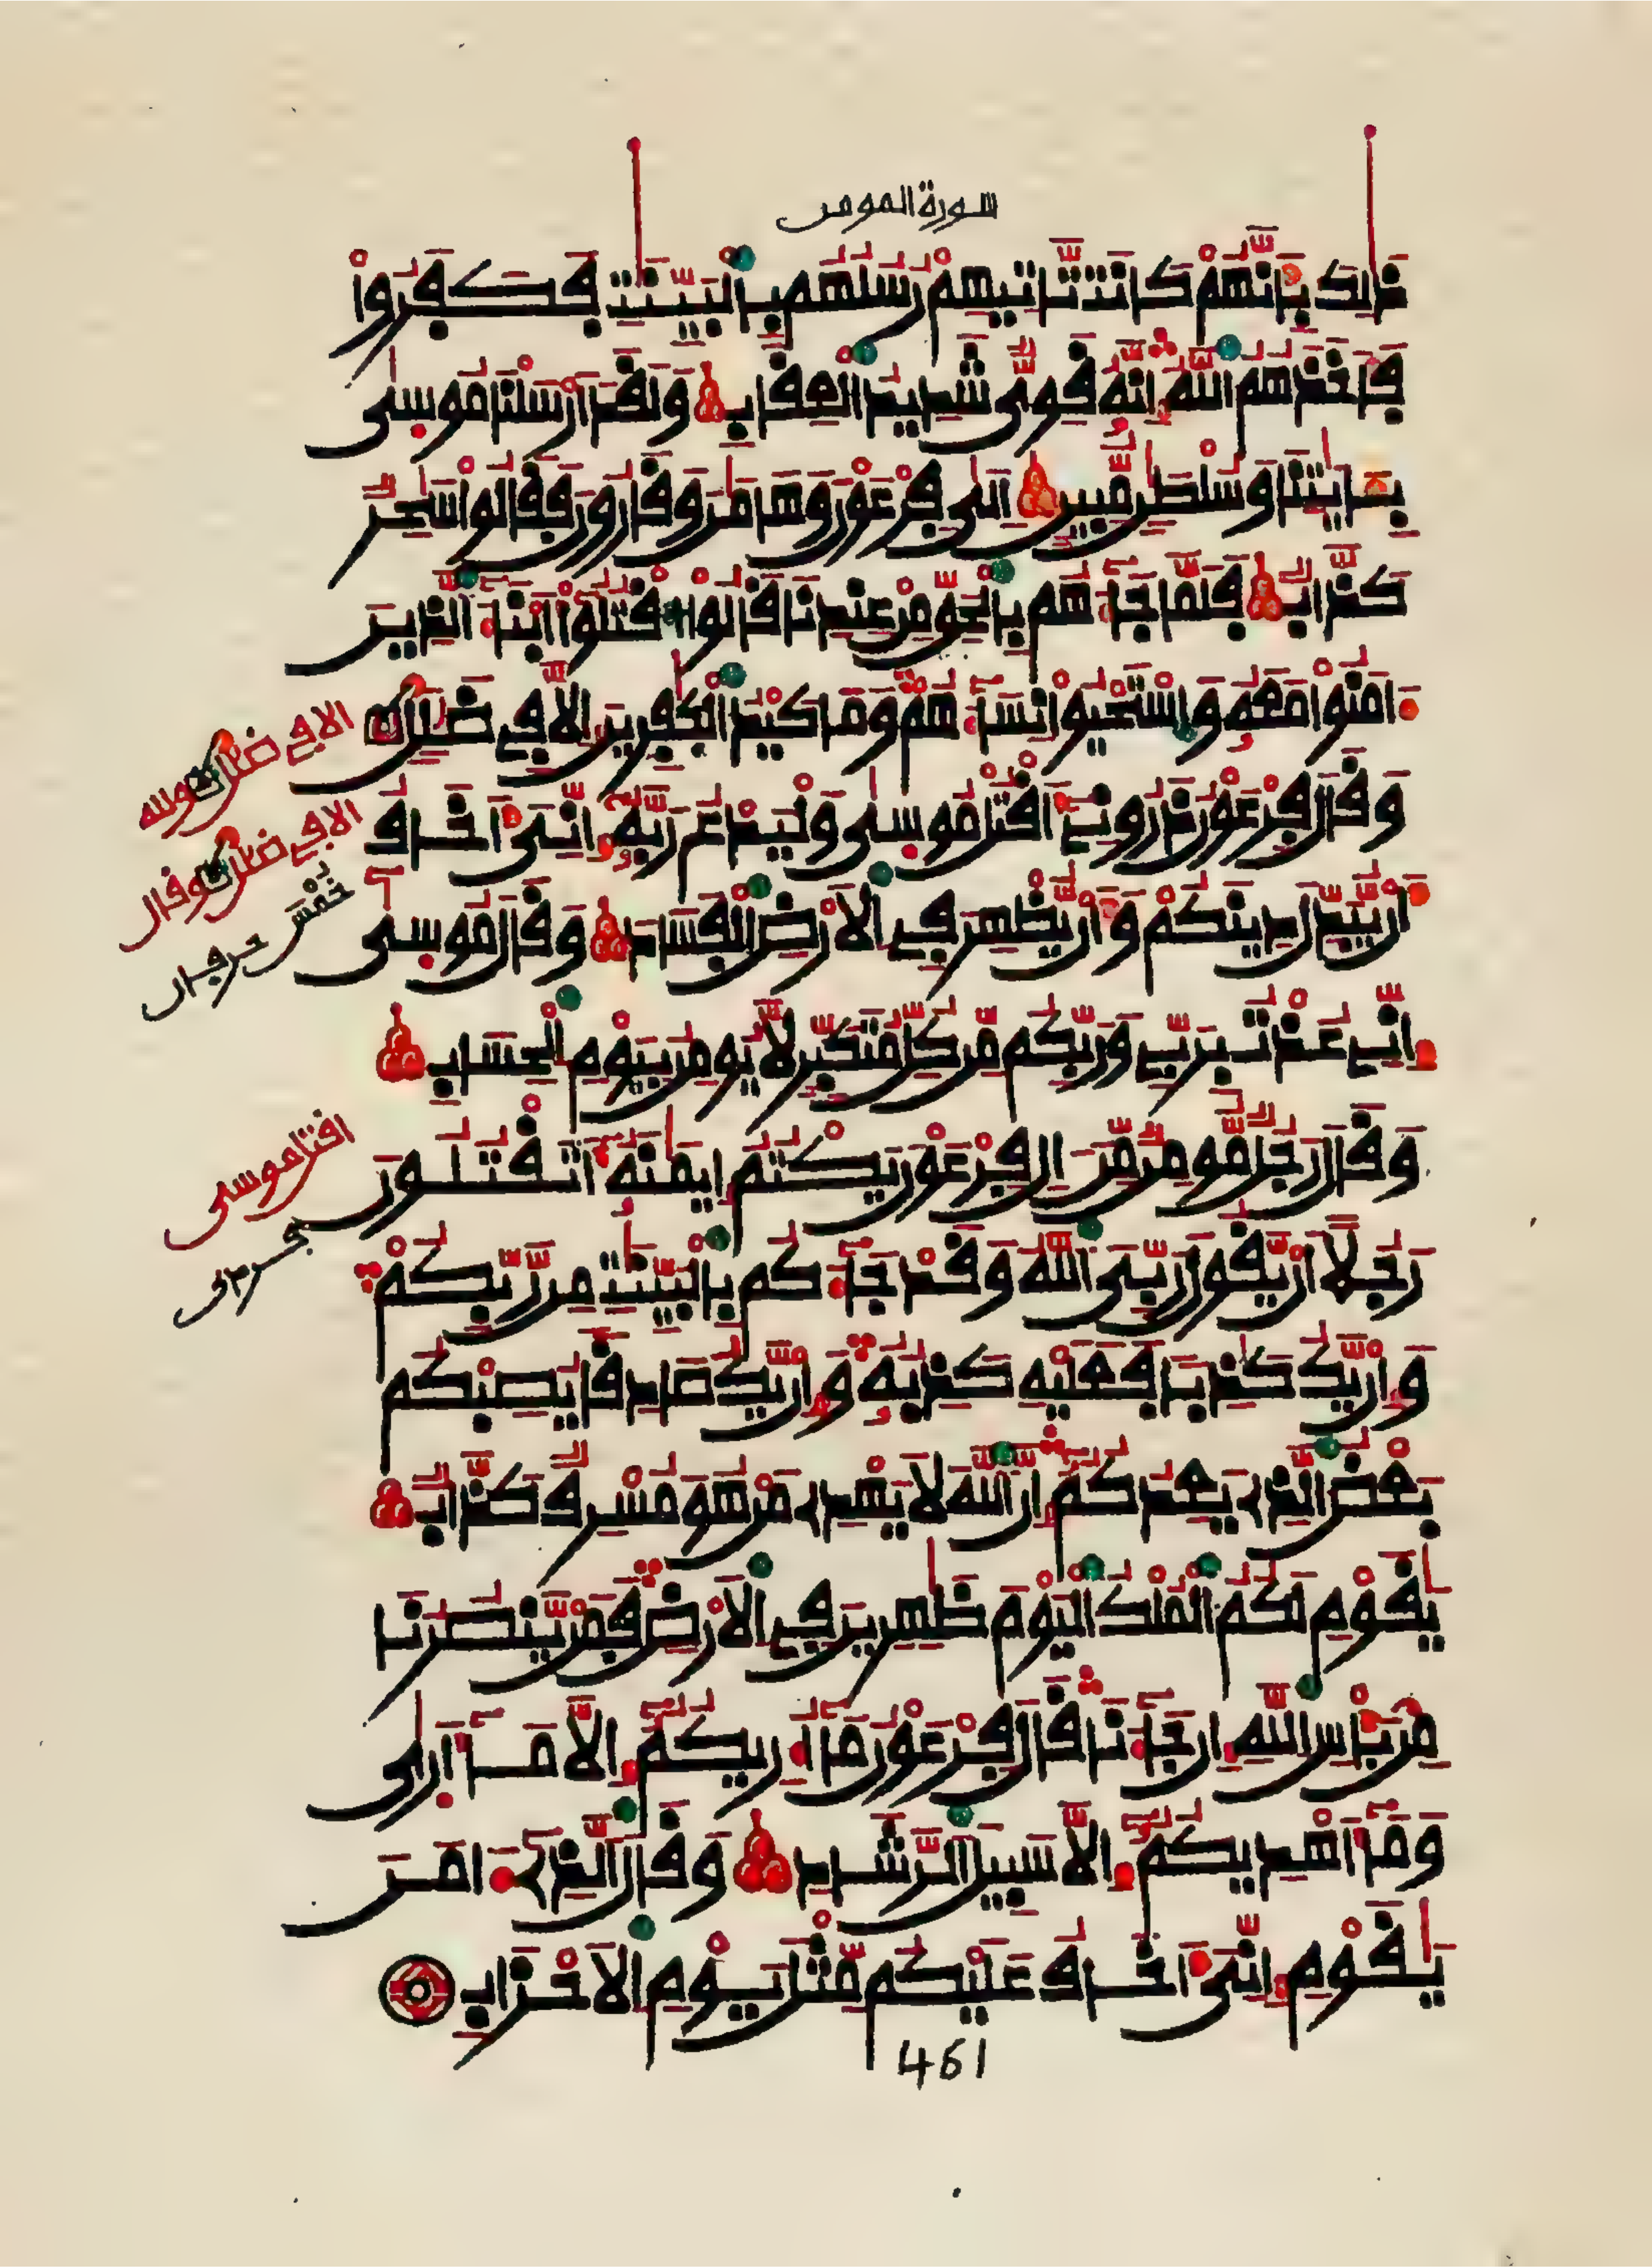 سورة المومن
ذَٰلِكَ بِأَنَّهُمْ كَانَت تَّاتِيهِمْ رُسُلُهُم بِالْبَيِّنَٰتِ فَكَفَرُواْ
فَأَخَذَهُمُ اللَّهُ إِنَّهُ قَوِيٌّ شَدِيدُ الْعِقَابِ وَلَقَدْ أَرْسَلْنَا مُوسىٰ
بِـَٔايَٰتِنَا وَسُلْطَٰنٍ مُّبِينٍ إِلىٰ فِرْعَوْنَ وَهَٰمَٰنَ وَقَٰرُونَ فَقَالُواْ سَٰحِرٌ
كَذَّابٌ فَلَمَّا جَآءَهُم بِالْحَقِّ مِنْ عِندِنَا قَالُواْ اقْتُلُوٓاْ أَبْنَآءَ الَّذِينَ
ءَامَنُواْ مَعَهُ وَاسْتَحْيُواْ نِسَآءَهُمْ وَمَا كَيْدُ الْكَٰفِرِينَ إِلَّا فِى ضَلَٰلٍ
وَقَالَ فِرْعَوْنُ ذَرُونِىٓ أَقْتُلْ مُوسىٰ وَلْيَدْعُ رَبَّهُ إِنِّىَ أَخَافُ
أَنْ يُّبَدِّلَ دِينَكُمْ وَأَنْ يُّظْهِرَ فِى الْأَرْضِ الْفَسَادَ وَقَالَ مُوسىٰ
إِنِّى عُذْتُ بِرَبِّى وَرَبِّكُم مِّن كُلِّ مُتَكَبِّرٍ لَّا يُومِنُ بِيَوْمِ الْحِسَابِ
وَقَالَ رَجُلٌ مُّومِنٌ مِّنْ ءَالِ فِرْعَوْنَ يَكْتُمُ إِيمَٰنَهُ أَتَقْتُلُونَ
رَجُلًا أَنْ يَّقُولَ رَبِّىَ اللَّهُ وَقَدْ جَآءَكُم بِالْبَيِّنَٰتِ مِن رَّبِّكُمْ
وَإِنْ يَّكُ كَٰذِبًا فَعَلَيْهِ كَذِبُهُ وَإِنْ يَّكُ صَادِقًا يُصِبْكُم
بَعْضُ الَّذِى يَعِدُكُمْ إِنَّ اللَّهَ لَا يَهْدِى مَنْ هُوَ مُسْرِفٌ كَذَّابٌ
يَٰقَوْمِ لَكُمُ الْمُلْكُ الْيَوْمَ ظَٰهِرِينَ فِى الْأَرْضِ فَمَنْ يَّنصُرُنَا
مِن بَأْسِ اللَّهِ إِن جَآءَنَا قَالَ فِرْعَوْنُ مَآ أُرِيكُمْ إِلَّا مَآ أَرىٰ
وَمَآ أَهْدِيكُمْ إِلَّا سَبِيلَ الرَّشَادِ وَقَالَ الَّذِىٓ ءَامَنَ
يَٰقَوْمِ إِنِّىَ أَخَافُ عَلَيْكُم مِّثْلَ يَوْمِ الْأَحْزَابِ
461
الا فى ضلل ولله
الا فى ضلل وقال
حرفان
اقتل موسى